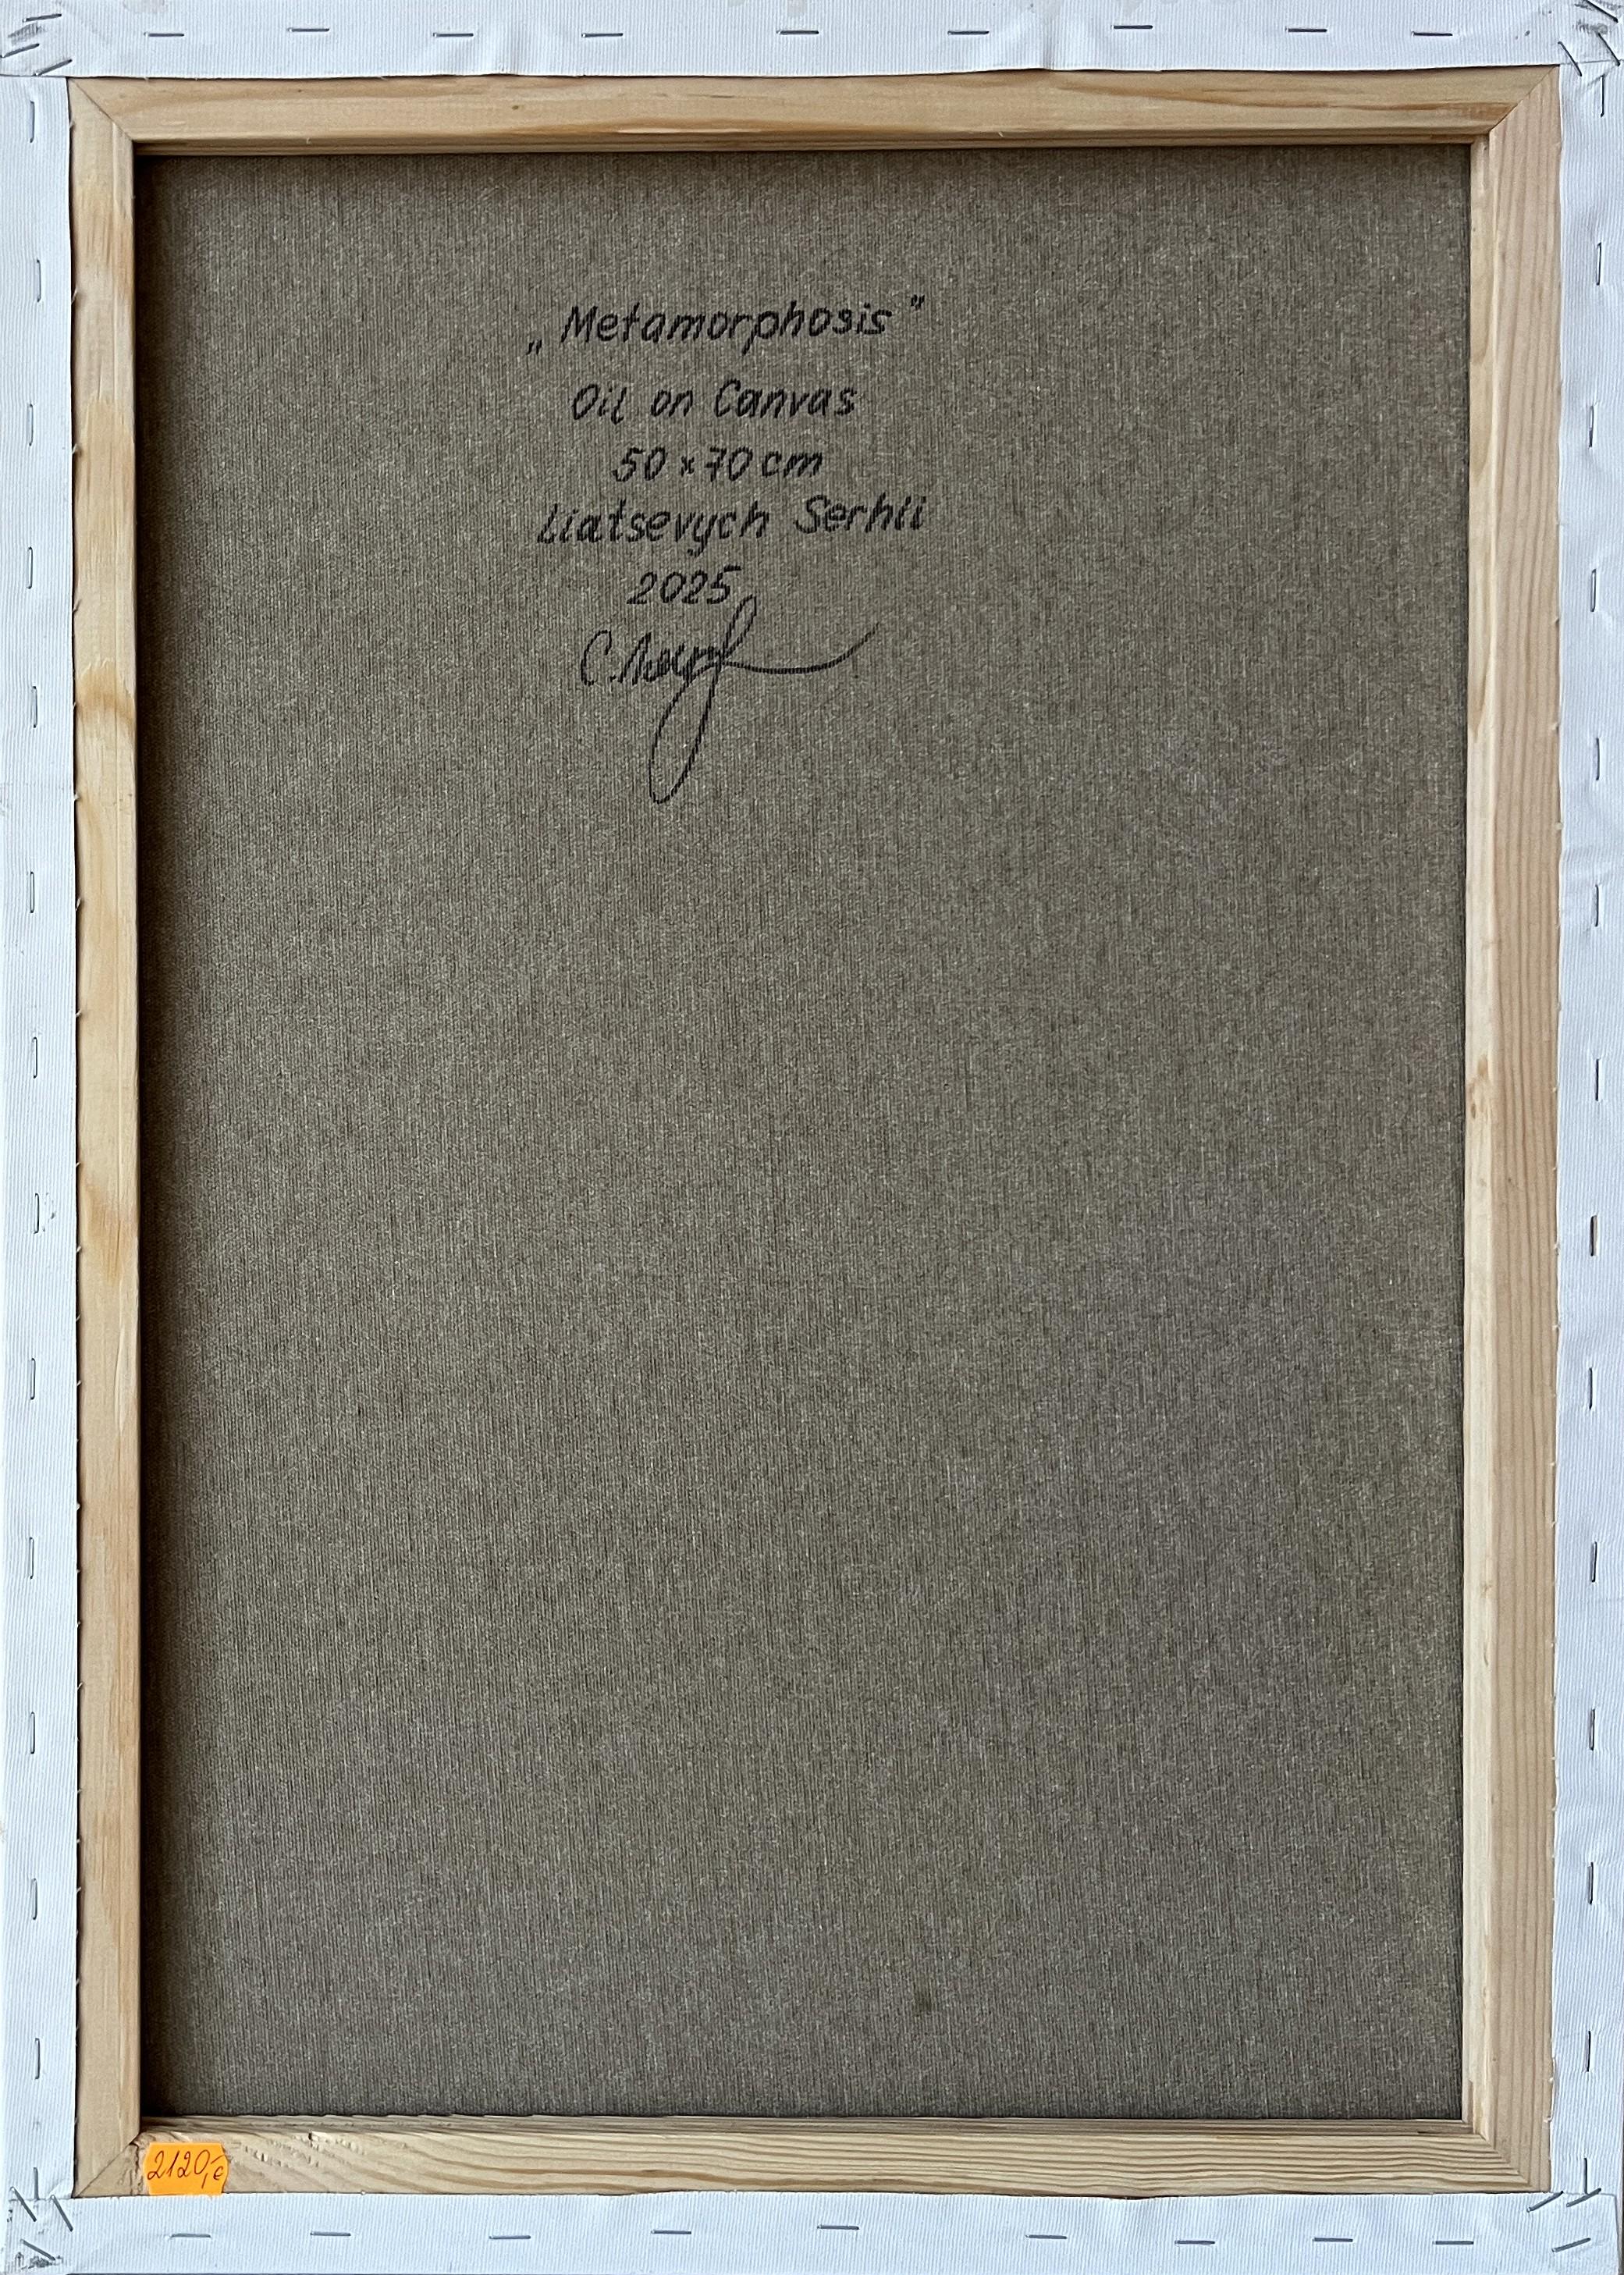 „Metamorphosis"
Oil on Canvas
50 x 70 cm
Liatsevych Serhii
2025
2120,-€